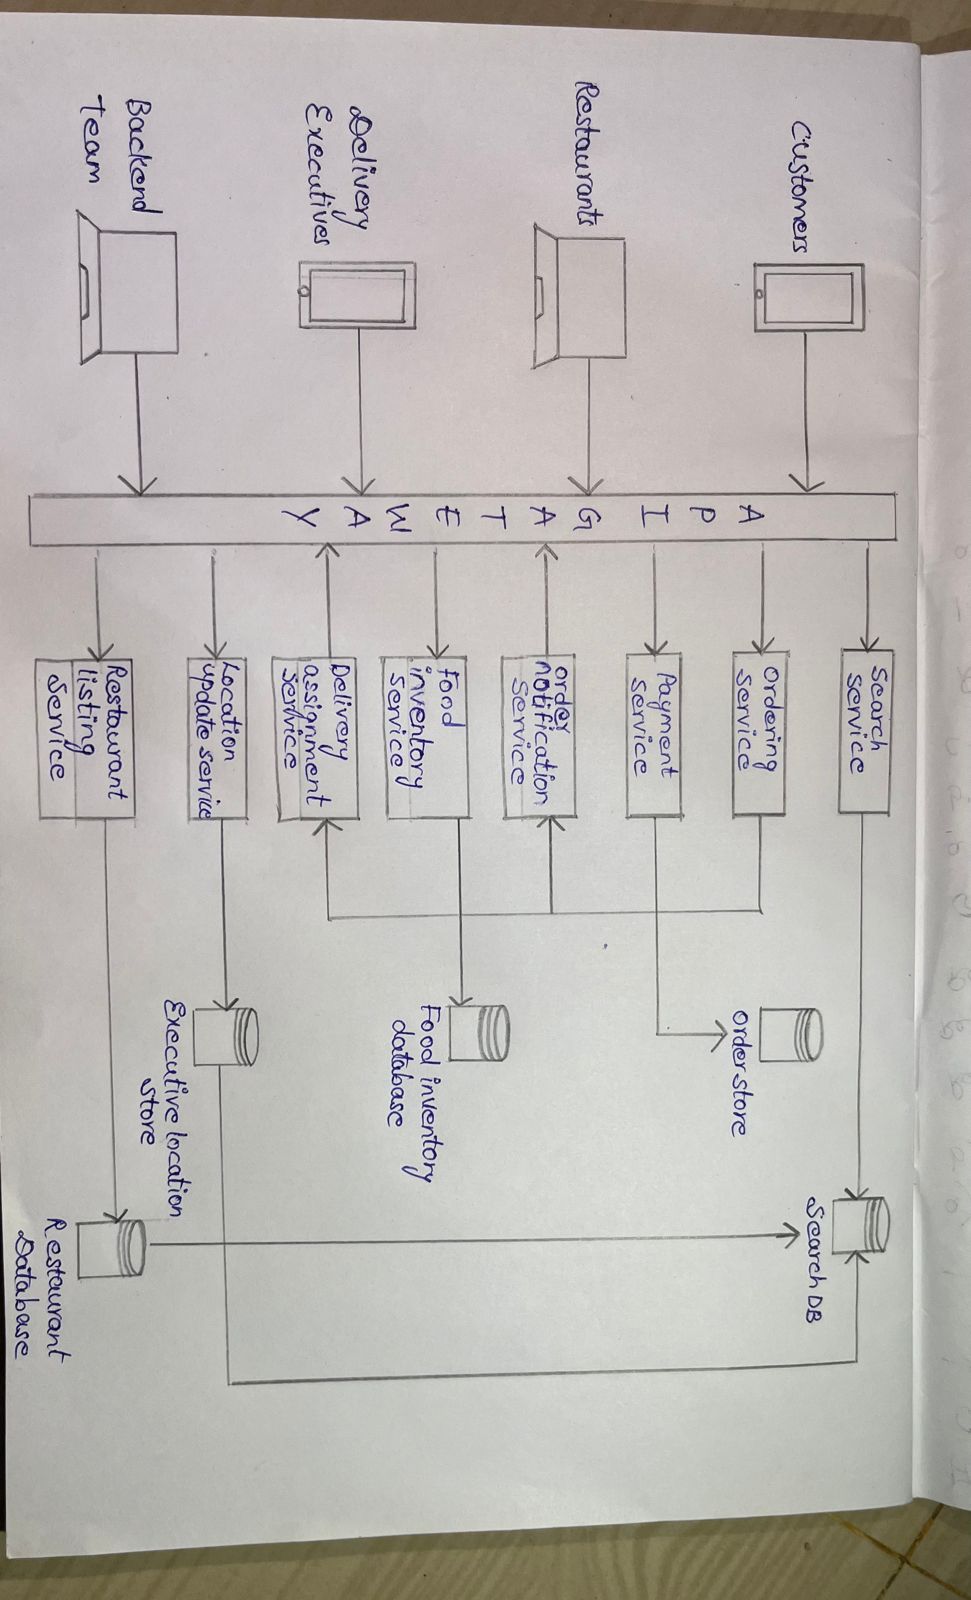 Customers
Restaurants
Delivery
Executives
Backend
Team
A
P
I
G
A
T
E
W
A
Y
Search
service
Ordering
service
Payment
service
order
notification
service
Food
inventory
service
Delivery
assignment
service
Location
update service
Restaurant
listing
service
Search DB
order store
Food inventory
database
Executive location
store
Restaurant
Database